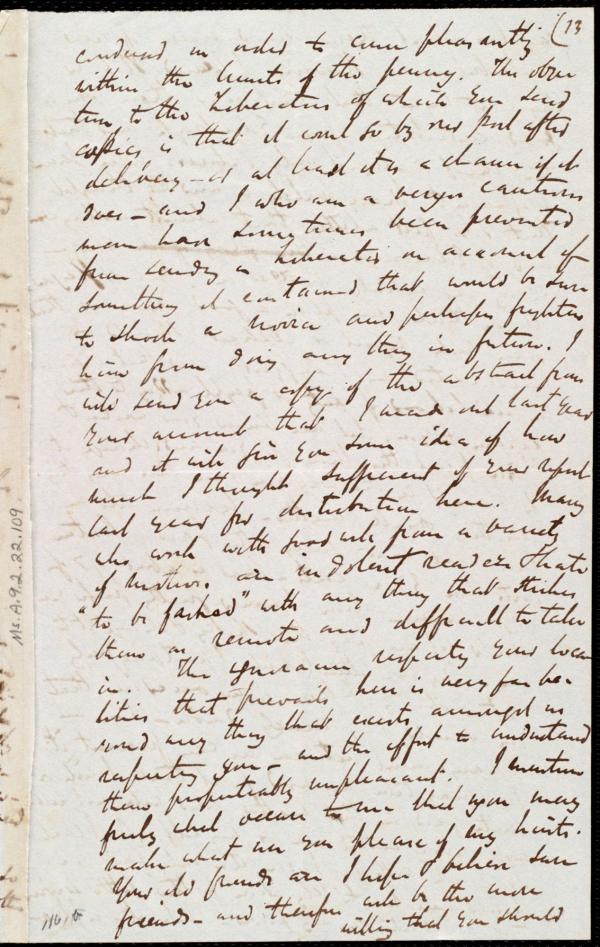 (13
condensed in order to come pleasantly
within the limits of the penny. The objec
tion to the Liberators of which you send
copies is that it comes so by our Post after
delivery – or at least it is a chance if it
does – and I who am a very cautious
man have sometimes been prevented
from sending a Liberator on account of
something it contained that would be sure
to shock a novice and perhaps frighten
him from doing any thing in future. I
will send you a copy of the abstract from
your account that I made out last year
and it will give you some idea of how
much I thought sufficient of your report
last year for distribution here. Many
who work with good will from a variety
of motives are indolent readers & hate
"to be fashed" with any thing that strikes
them as remote and difficult to take
in. The ignorance respecting your loca
lities that prevails here is very far be-
yond any thing that exists amongst us
respecting you – and the effort to understand
them proportionably unpleasant. I mention
freely what occurs to me that you may
make what use you please of my hints.
Your old friends are I hope & believe sure
friends – and therefore will be the more
willing that you should
Ms. A. 9. 2. 22. 109